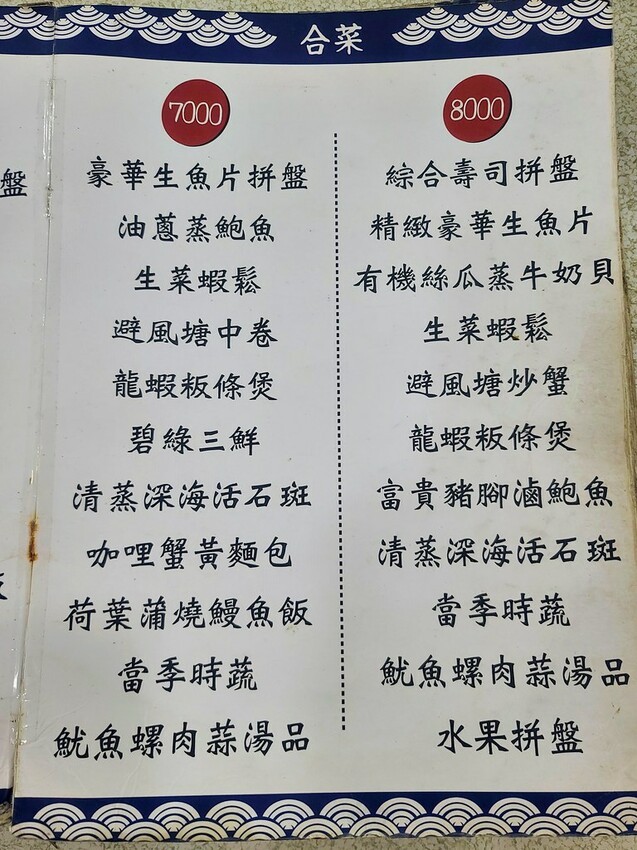 合菜
7000
豪華生魚片拼盤
油蔥蒸鮑魚
生菜蝦鬆
避風塘中卷
龍蝦粄條煲
碧綠三鮮
清蒸深海活石斑
咖哩蟹黃麵包
荷葉蒲燒鰻魚飯
當季時蔬
魷魚螺肉蒜湯品
8000
綜合壽司拼盤
精緻豪華生魚片
有機絲瓜蒸牛奶貝
生菜蝦鬆
避風塘炒蟹
龍蝦粄條煲
富貴豬腳滷鮑魚
清蒸深海活石斑
當季時蔬
魷魚螺肉蒜湯品
水果拼盤
盤